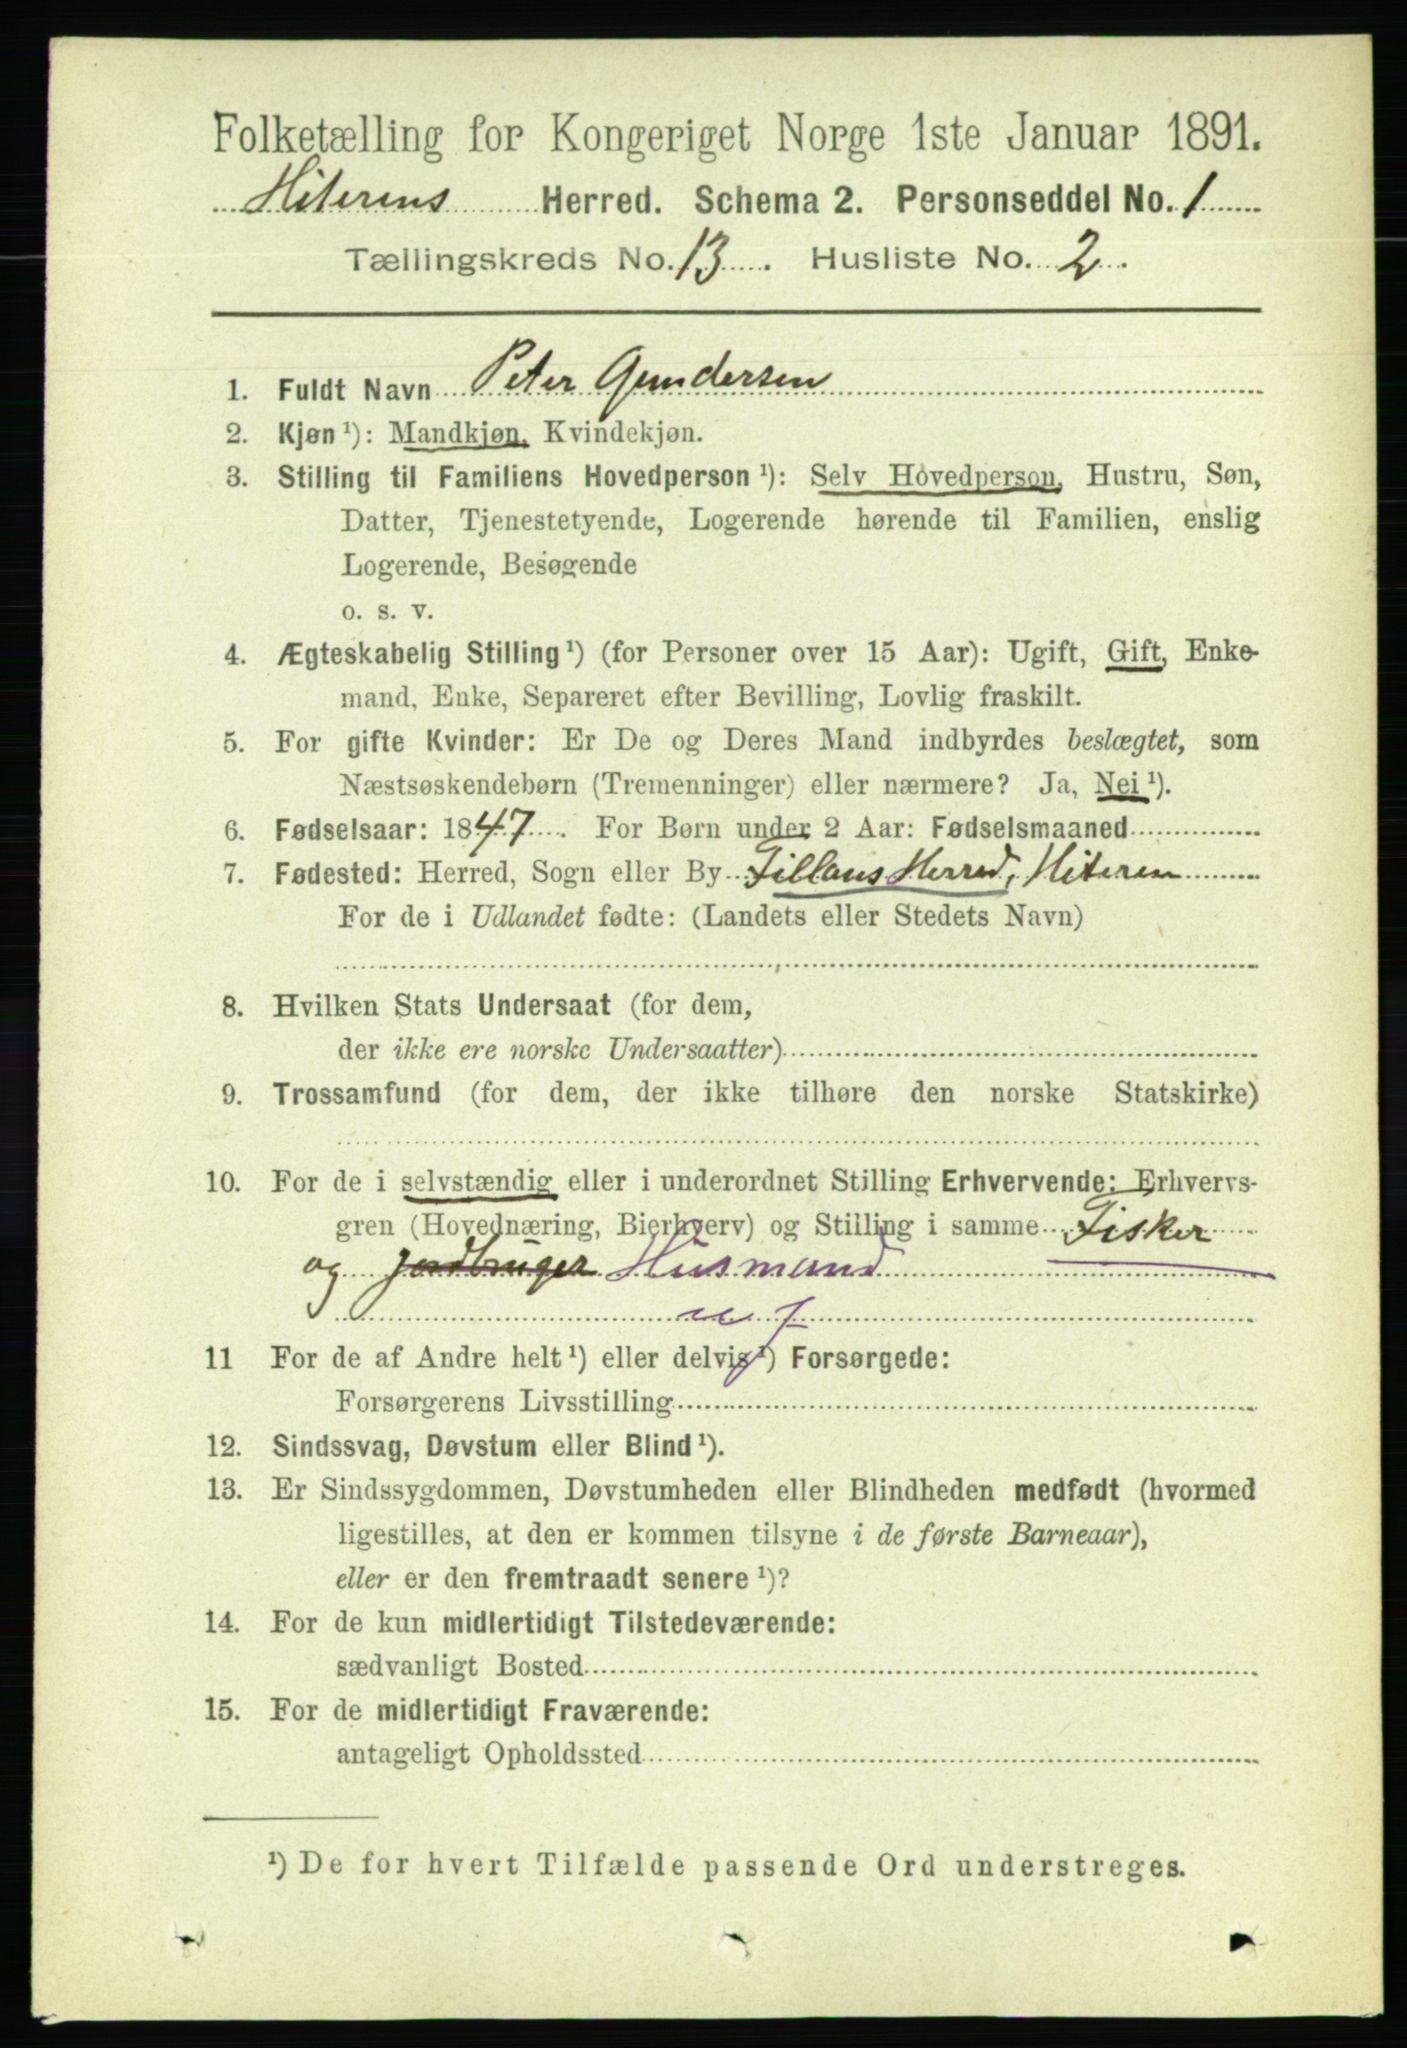 Folketælling for Kongeriget Norge 1ste Januar 1891.
Hiterens Herred. Schema 2. Personseddel No. 1
Tællingskreds No. 13. Husliste No. 2.
1. Fuldt Navn Peter Gundersen
2. Kjøn ¹): Mandkjøn, Kvindekjøn.
3. Stilling til Familiens Hovedperson ¹): Selv Hovedperson, Hustru, Søn,
Datter, Tjenestetyende, Logerende hørende til Familien, enslig
Logerende, Besøgende
o. s. v.
4. Ægteskabelig Stilling ¹) (for Personer over 15 Aar): Ugift, Gift, Enke-
mand, Enke, Separeret efter Bevilling, Lovlig fraskilt.
5. For gifte Kvinder: Er De og Deres Mand indbyrdes beslægtet, som
Næstsøskendebørn (Tremenninger) eller nærmere? Ja, Nei ¹).
6. Fødselsaar: 1847. For Børn under 2 Aar: Fødselsmaaned
7. Fødested: Herred, Sogn eller By Fillans Herred, Hiteren
For de i Udlandet fødte: (Landets eller Stedets Navn)
8. Hvilken Stats Undersaat (for dem,
der ikke ere norske Undersaatter)
9. Trossamfund (for dem, der ikke tilhøre den norske Statskirke)
10. For de i selvstændig eller i underordnet Stilling Erhvervende: Erhvervs-
gren (Hovednæring, Bierhverv) og Stilling i samme Fisker
og Jordbruger Husmand
11 For de af Andre helt ¹) eller delvis ¹) Forsørgede:
Forsørgerens Livsstilling
12. Sindssvag, Døvstum eller Blind ¹).
13. Er Sindssygdommen, Døvstumheden eller Blindheden medfødt (hvormed
ligestilles, at den er kommen tilsyne i de første Barneaar),
eller er den fremtraadt senere ¹)?
14. For de kun midlertidigt Tilstedeværende:
sædvanligt Bosted
15. For de midlertidigt Fraværende:
antageligt Opholdssted
¹) De for hvert Tilfælde passende Ord understreges.